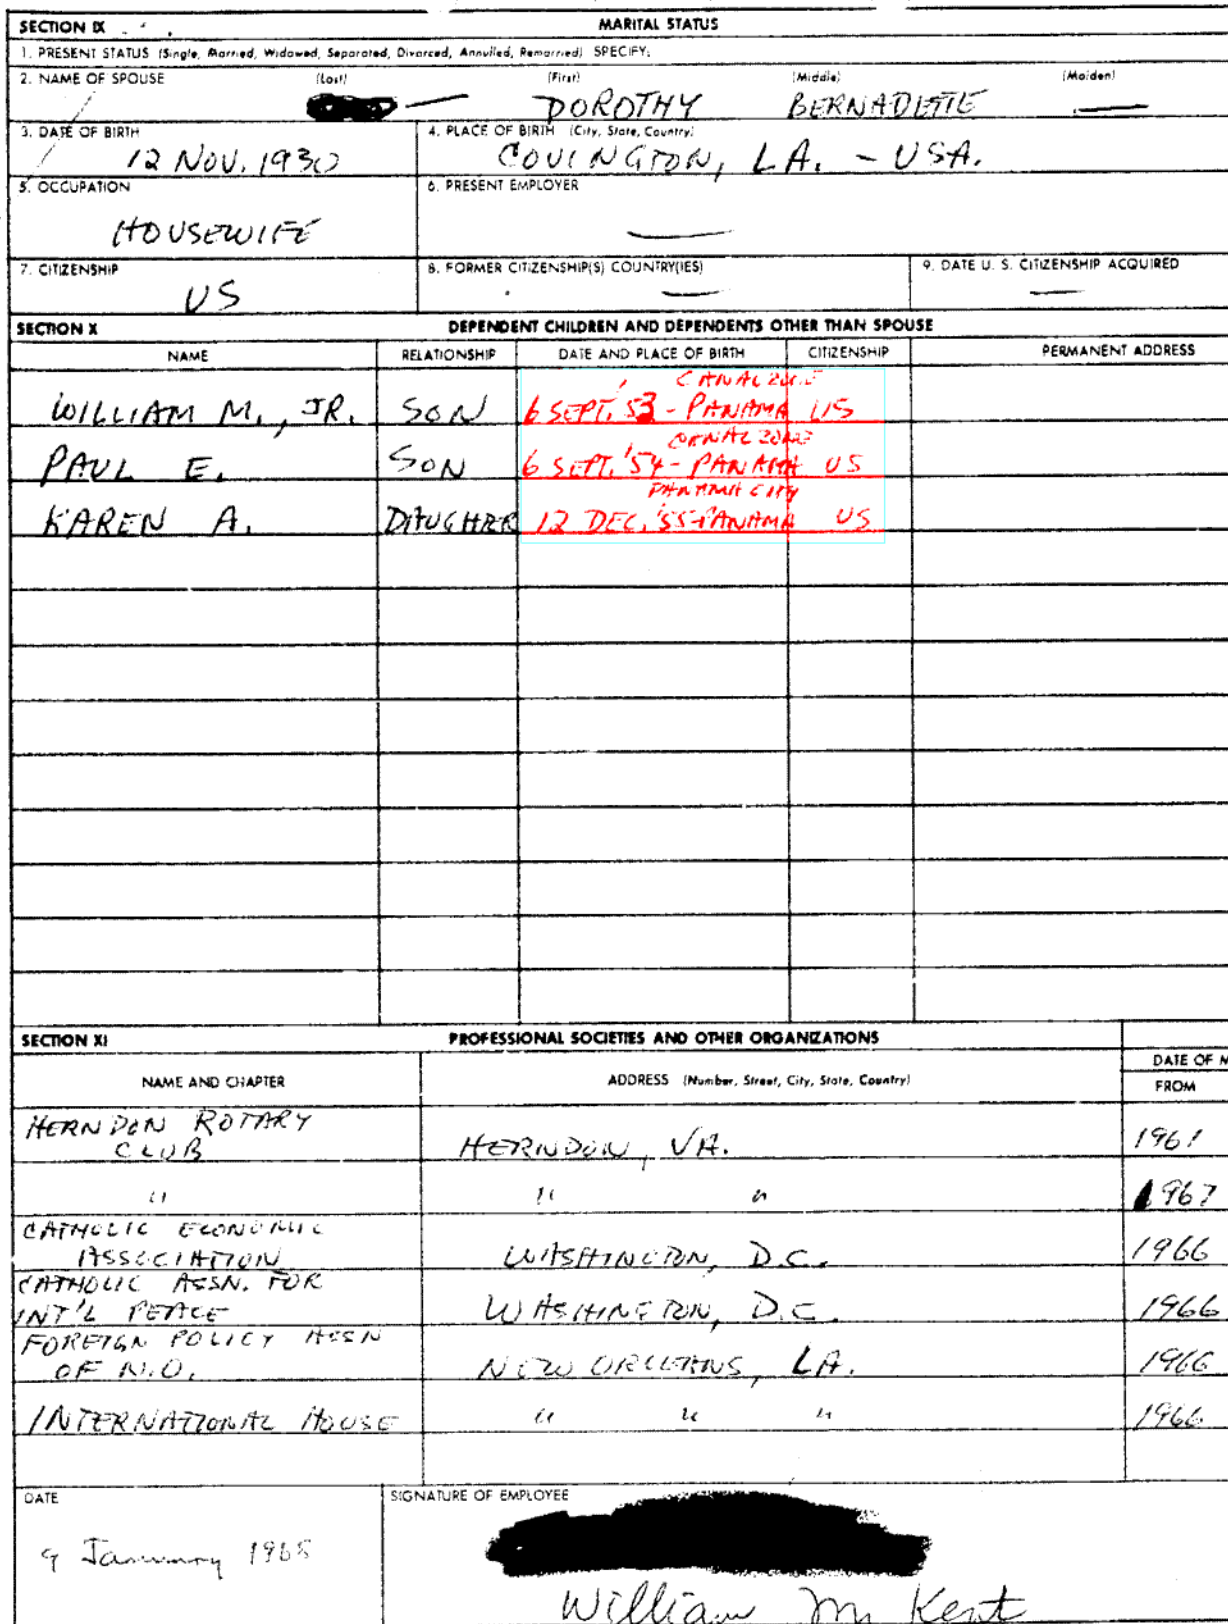 SECTION IX MARITAL STATUS
1. PRESENT STATUS (Single, Married, Widowed, Separated, Divorced, Annulled, Remarried) SPECIFY:
2. NAME OF SPOUSE (Last) (First) (Middle) (Maiden)
— DOROTHY BERNADETTE —
3. DATE OF BIRTH 4. PLACE OF BIRTH (City, State, Country)
12 NOV. 1930 COVINGTON, LA. - USA.
5. OCCUPATION 6. PRESENT EMPLOYER
HOUSEWIFE —
7. CITIZENSHIP 8. FORMER CITIZENSHIP(S) COUNTRY(IES) 9. DATE U. S. CITIZENSHIP ACQUIRED
US — —
SECTION X DEPENDENT CHILDREN AND DEPENDENTS OTHER THAN SPOUSE
NAME RELATIONSHIP DATE AND PLACE OF BIRTH CITIZENSHIP PERMANENT ADDRESS
CANAL ZONE
WILLIAM M., JR. SON 6 SEPT. '53 - PANAMA US
CANAL ZONE
PAUL E. SON 6 SEPT. '54 - PANAMA US
PANAMA CITY
KAREN A. DAUGHER 12 DEC. '55-PANAMA US
SECTION XI PROFESSIONAL SOCIETIES AND OTHER ORGANIZATIONS
DATE OF M
NAME AND CHAPTER ADDRESS (Number, Street, City, State, Country) FROM
HERNDON ROTARY
CLUB HERNDON, VA. 1961
" " " 1967
CATHOLIC ECONOMIC
ASSOCIATION WASHINGTON, D.C. 1966
CATHOLIC ASSN. FOR
INT'L PEACE WASHINGTON, D.C. 1966
FOREIGN POLICY ASSN
OF N.O. NEW ORLEANS, LA. 1966
INTERNATIONAL HOUSE " " " 1966
DATE SIGNATURE OF EMPLOYEE
9 January 1968
William M Kent